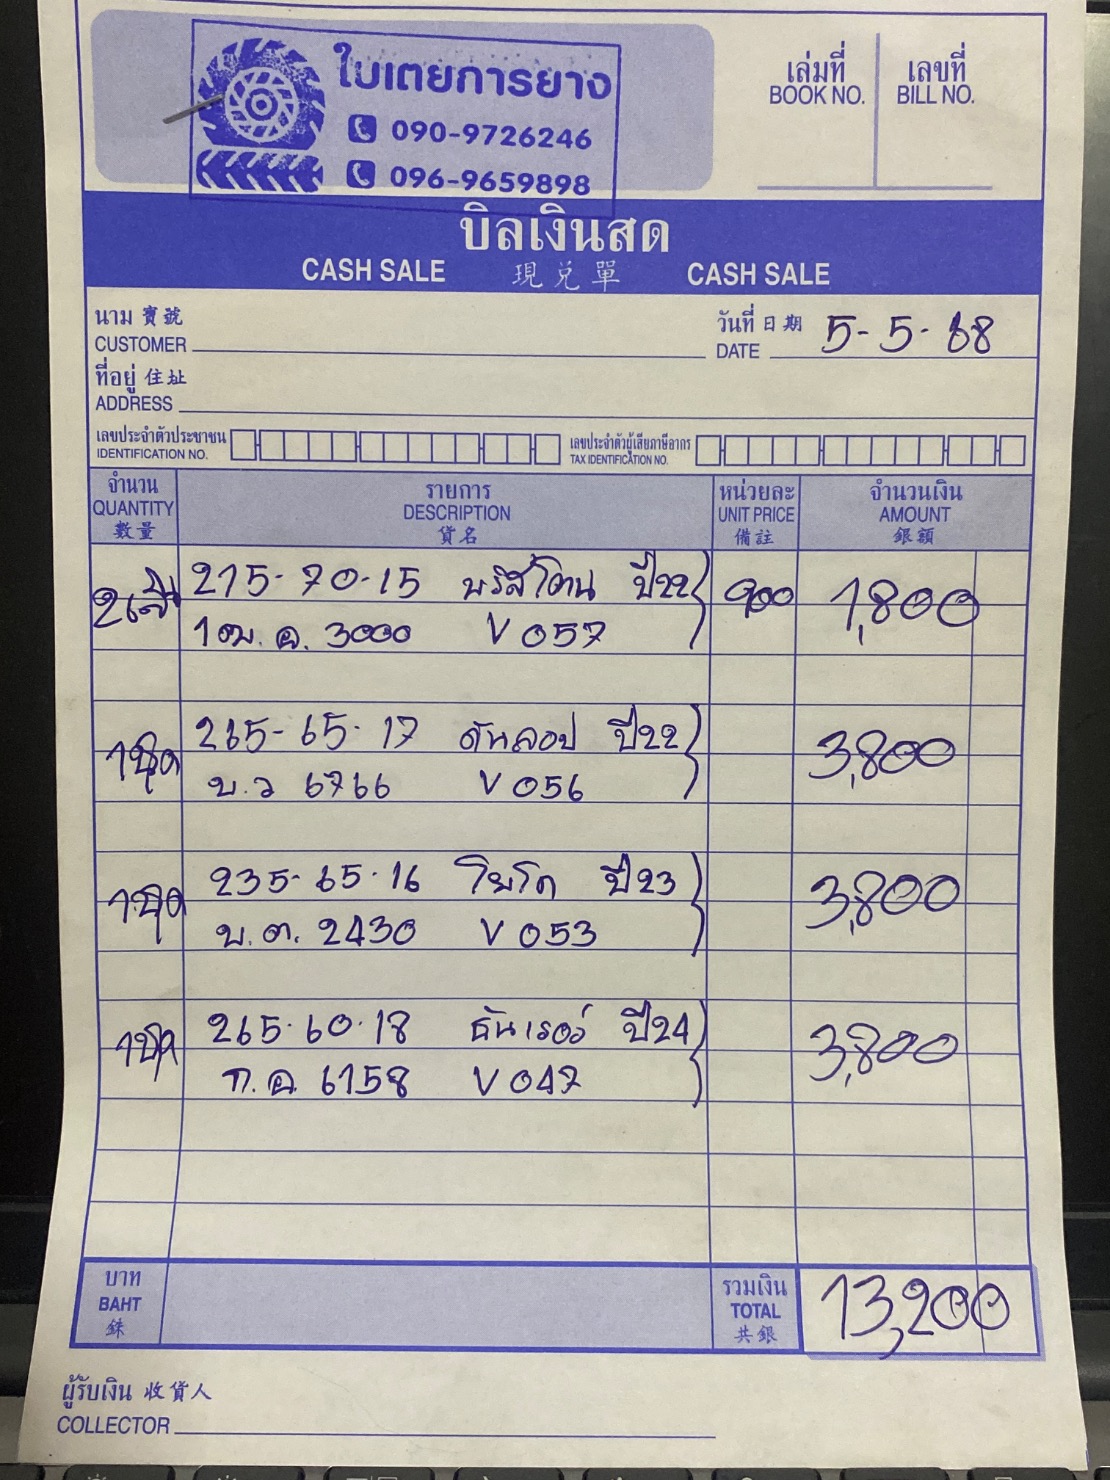 ใบเตยการยาง
090-9726246
096-9659898
เล่มที่
BOOK NO.
เลขที่
BILL NO.
บิลเงินสด
CASH SALE 現兌單 CASH SALE
นาม 寶號
CUSTOMER
วันที่ 日期
DATE 5-5-68
ที่อยู่ 住址
ADDRESS
เลขประจำตัวประชาชน
IDENTIFICATION NO.
เลขประจำตัวผู้เสียภาษีอากร
TAX IDENTIFICATION NO.
จำนวน
QUANTITY
數量
รายการ
DESCRIPTION
貨名
หน่วยละ
UNIT PRICE
備註
จำนวนเงิน
AMOUNT
銀額
2เส้น 215-70-15 บริสโตน ปี22 900 1,800
1ฒ.ฉ. 3000 V057
1ชุด 265-65-17 ดันลอป ปี22 3,800
บ.ว 6766 V056
1ชุด 235-65-16 โยโก ปี23 3,800
บ.ต. 2430 V053
1ชุด 265-60-18 ธันเดอร์ ปี24 3,800
6158 V047
บาท
BAHT
銖
รวมเงิน
TOTAL
共銀
13,200
ผู้รับเงิน 收貨人
COLLECTOR